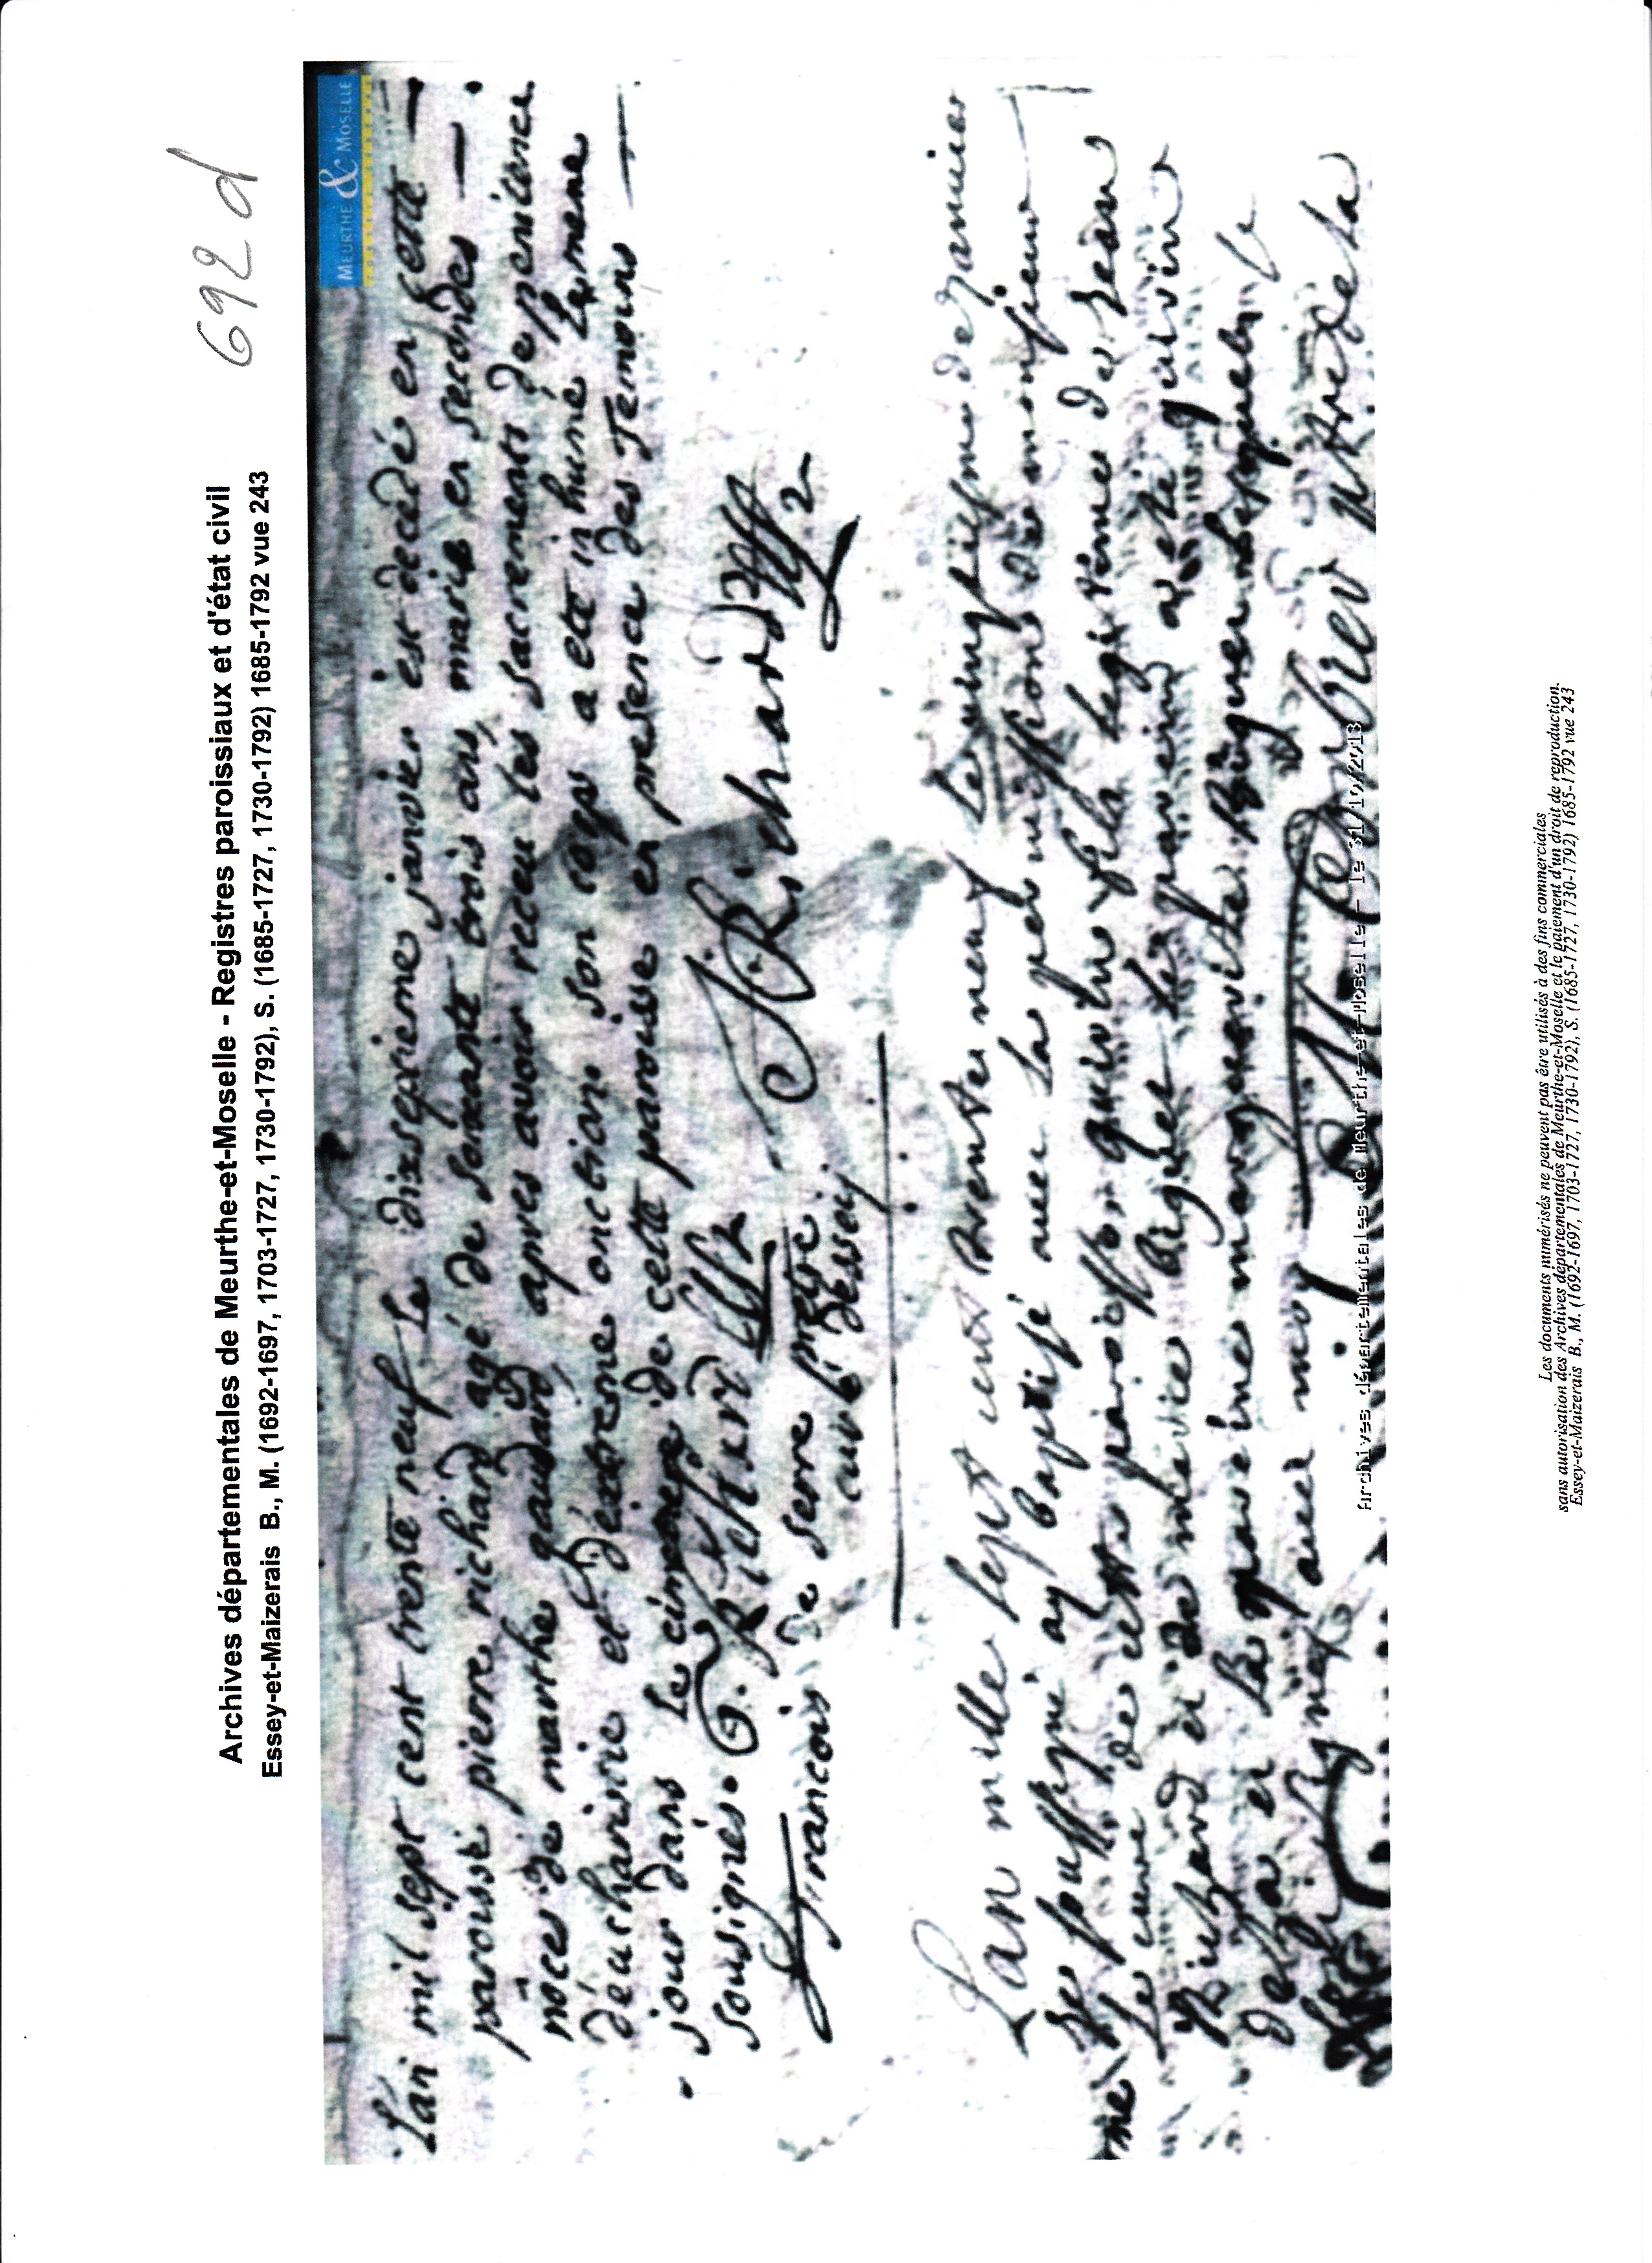 692 d
Archives départementales de Meurthe-et-Moselle - Registres paroissiaux et d'état civil
Essey-et-Maizerais B., M. (1692-1697, 1703-1727, 1730-1792), S. (1685-1727, 1730-1792) 1685-1792 vue 243
MEURTHE & MOSELLE
L'an mil sept cent trente neuf Le dixseptieme janvier est decedé en cette
paroisse pierre richard agé de soixante trois ans marié en secondes
nôces de marthe gaudard, apres avoir receu les sacrements de penitence
d'eucharistie et d'extreme onction son corps a eté inhumé Le meme
jour dans Le cimmetiere de cette paroisse en presence des Temoins
sousignés. G. Richard J Richard
francois de serre prestre
curé dessuy
L'an mille sept cent trente neuf Le vingtiesme de janvier
Je soussigné ay baptisé avec la permission de monsieur
le curé de cette paroisse fils legitime de Jean
Richard et de Le parein a eté
La mareine marguerite
avec moy
prtre de la
Archives départementales de Meurthe-et-Moselle - le 31/10/2013
Les documents numérisés ne peuvent pas être utilisés à des fins commerciales
sans autorisation des Archives départementales de Meurthe-et-Moselle et le paiement d'un droit de reproduction.
Essey-et-Maizerais B., M. (1692-1697, 1703-1727, 1730-1792), S. (1685-1727, 1730-1792) 1685-1792 vue 243